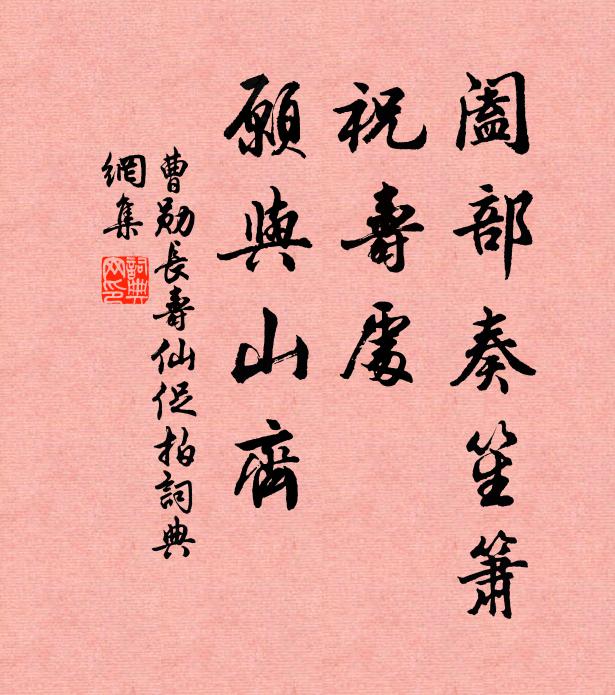 闔部奏笙簫
祝壽處
願與山齊
曹勛長壽仙促拍詞典
網集
詞典網印